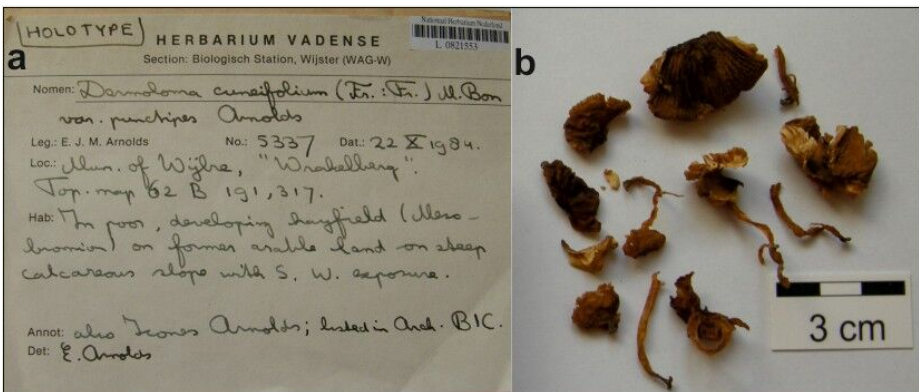 HOLOTYPE
Nationaal Herbarium Nederland
L 0821553
a
HERBARIUM VADENSE
Section: Biologisch Station, Wijster (WAG-W)
Nomen: Dermoloma cuneifolium (Fr.: Fr.) M. Bon
var. punctipes Arnolds
Leg.: E. J. M. Arnolds No.: 5337 Dat.: 22 X 1984.
Loc.: Mun. of Wijlre, "Wrakelberg".
Top. map 62 B 191, 317.
Hab: In poor, developing hayfield (Meso-
bromion) on former arable land on steep
calcareous slope with S. W. exposure.
Annot: also Icones Arnolds; listed in Arch. BIC.
Det: E. Arnolds
b
3 cm